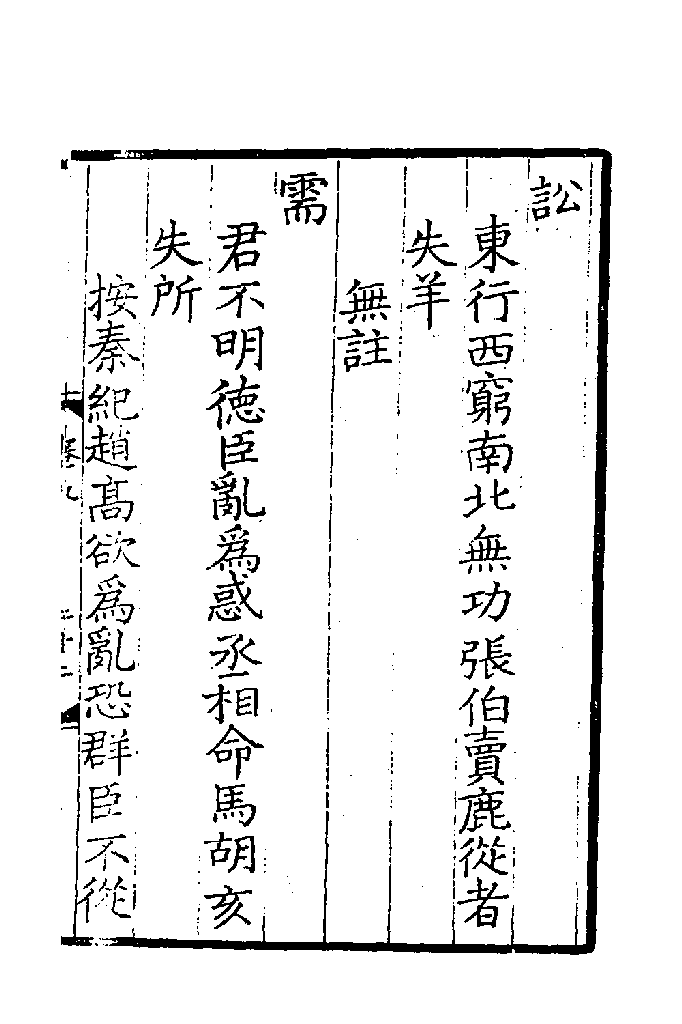 訟
東行西窮南北無功張伯賣鹿從者
失羊
無註
需
君不明德臣亂為惑丞相命馬胡亥
失所
按秦紀趙髙欲為亂恐群臣不從